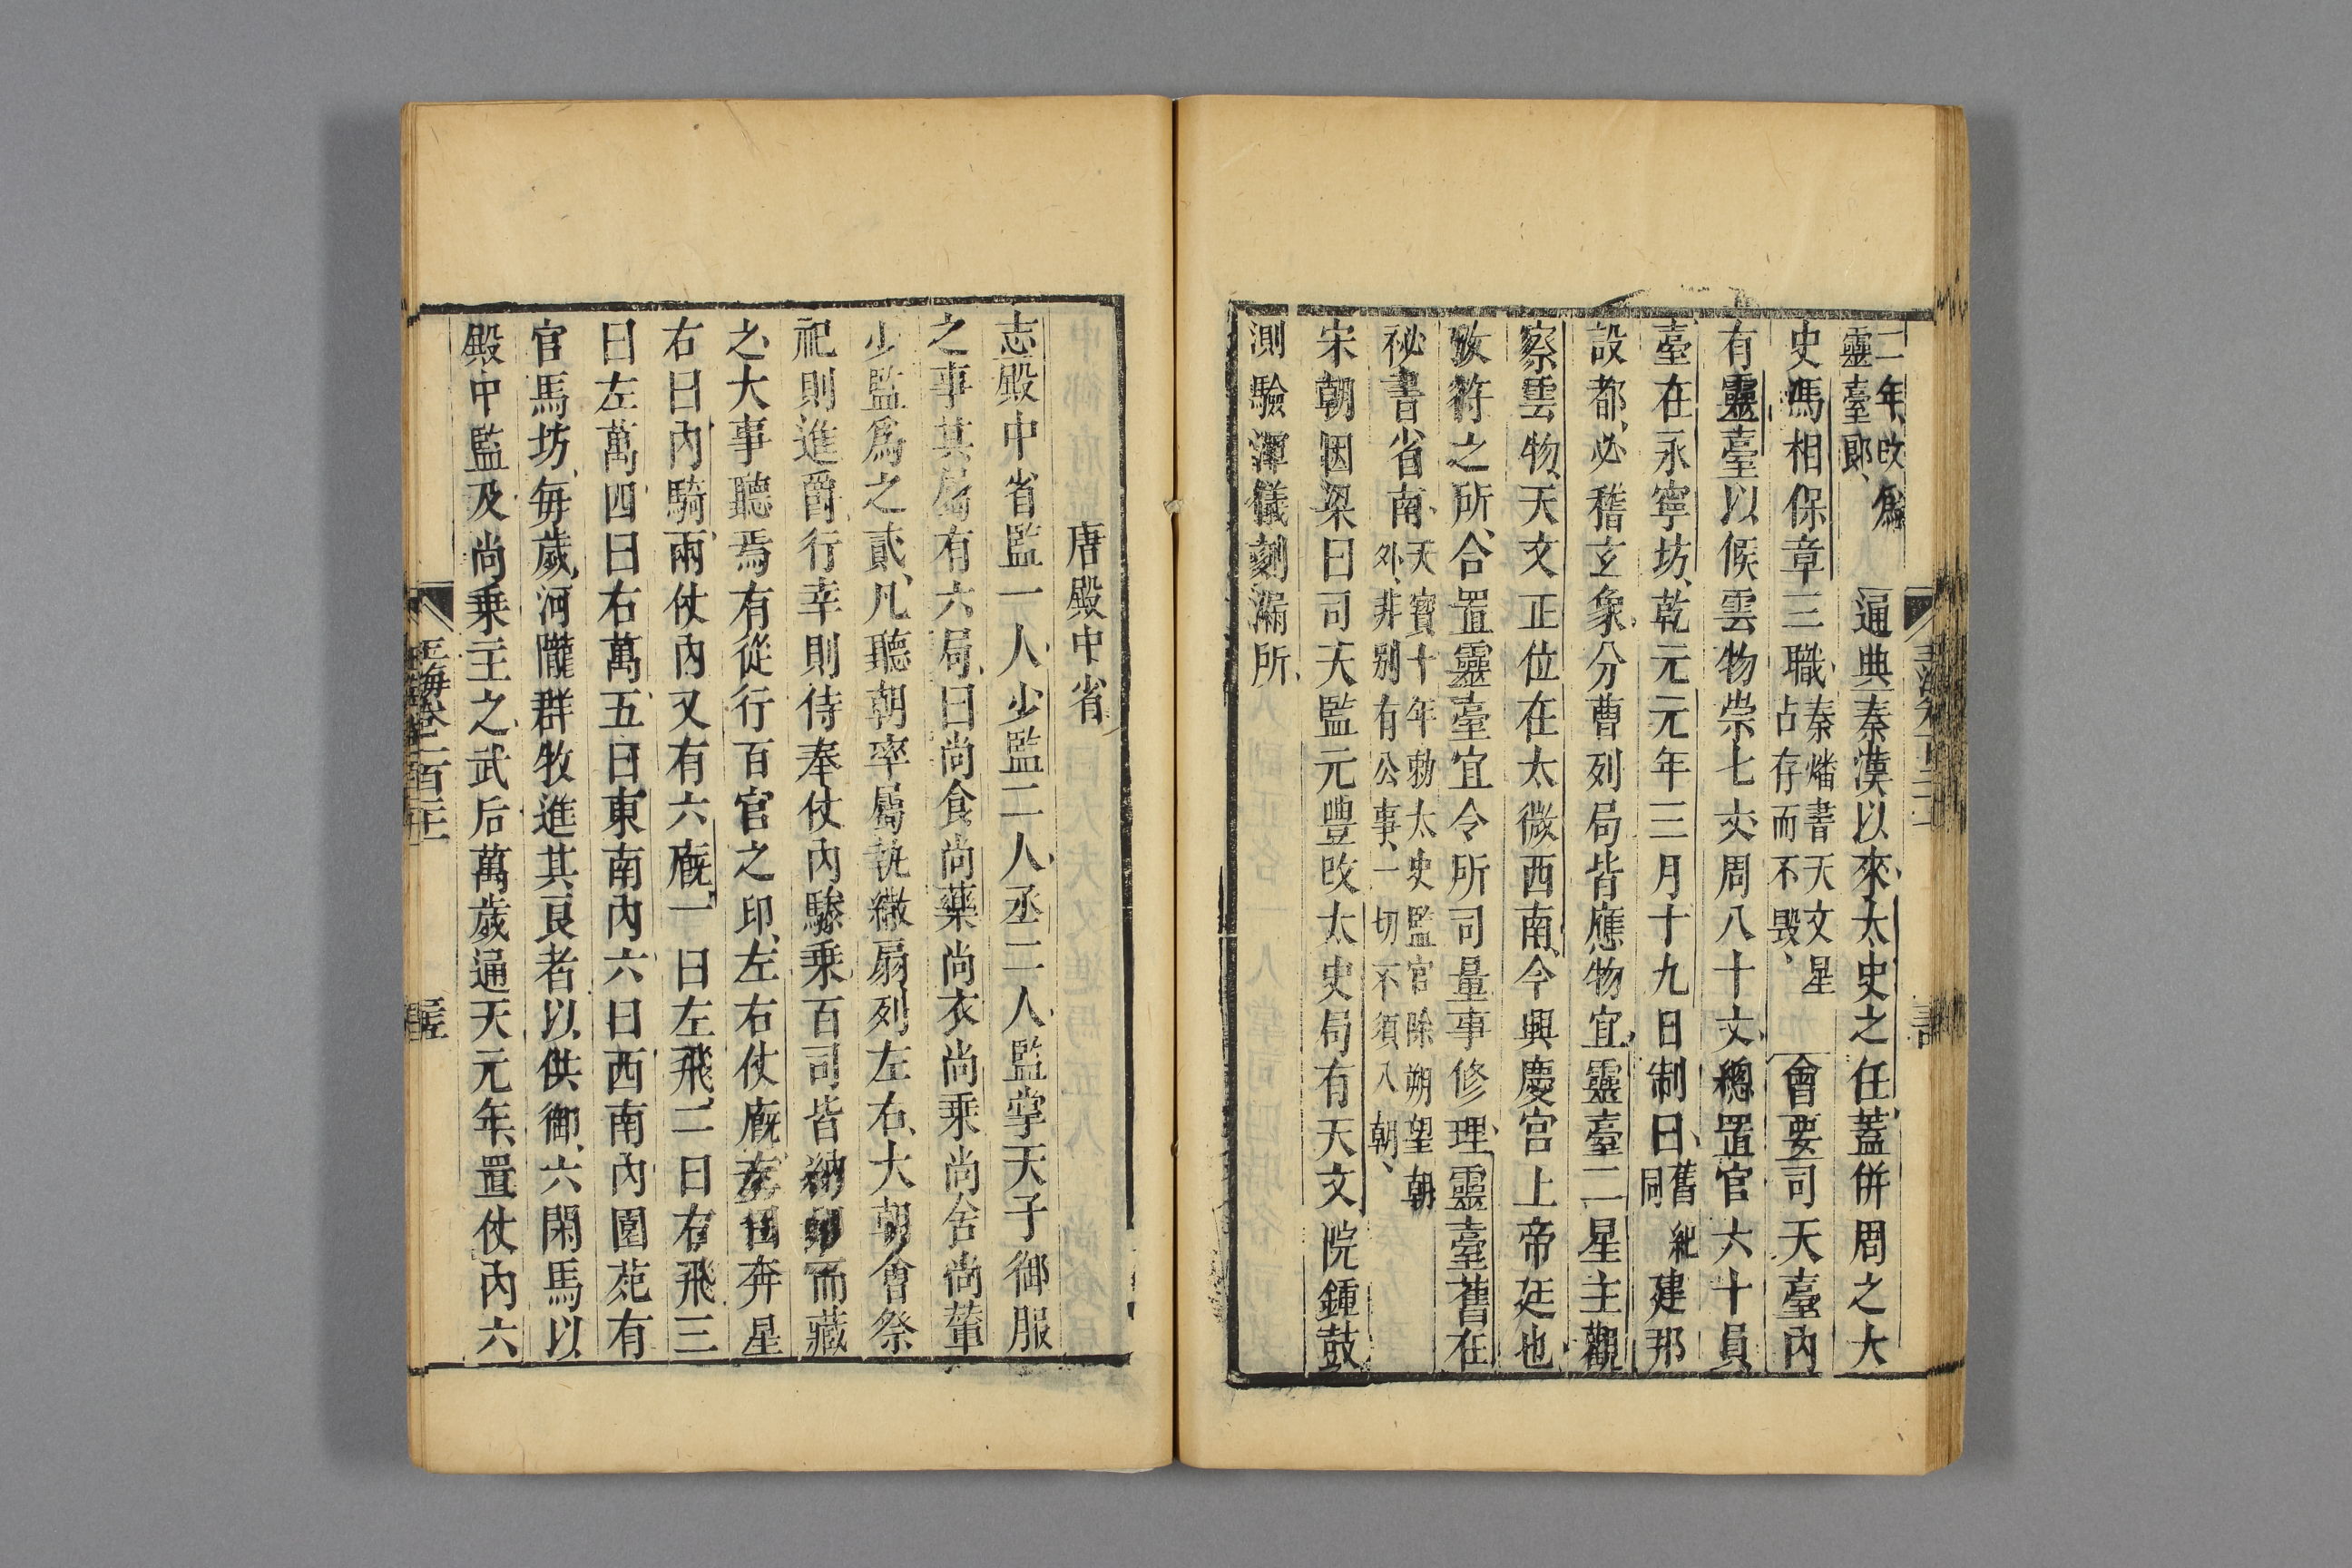 二年改爲靈臺郎通典秦漢以來太史之任蓋併周之大
史馮相保章三職秦燔書天文星占存而不毀會要司天臺內
有靈臺以候雲物崇七丈周八十丈總置官六十員
臺在永寧坊乾元元年三月十九日制曰舊紀同建邦
設都必稽玄象分曹列局皆應物宜靈臺二星主觀
察雲物天文正位在太微西南今興慶宮上帝廷也
攷符之所合置靈臺宜令所司量事修理靈臺舊在
秘書省南天寶十年勅太史監官除朔望朝外非別有公事一切不須入朝
宋朝因梁曰司天監元豐改太史局有天文院鍾鼓
測驗渾儀刻漏所
唐殿中省
志殿中省監一人少監二人丞二人監掌天子御服
之事其屬有六局曰尚食尚藥尚衣尚乘尚舍尚輦
少監爲之貳凡聽朝率屬執繖扇列左右大朝會祭
祀則進爵行幸則侍奉仗內驂乘百司皆納印而藏
之大事聽焉有從行百官之印左右仗廐左曰奔星
右曰內駒兩仗內又有六廐一曰左飛二曰右飛三
曰左萬四曰右萬五曰東南內六曰西南內園苑有
官馬坊每歲河隴群牧進其良者以供御六閑馬以
殿中監及尚乘主之武后萬歲通天元年置仗內六
玉海卷一百二十二